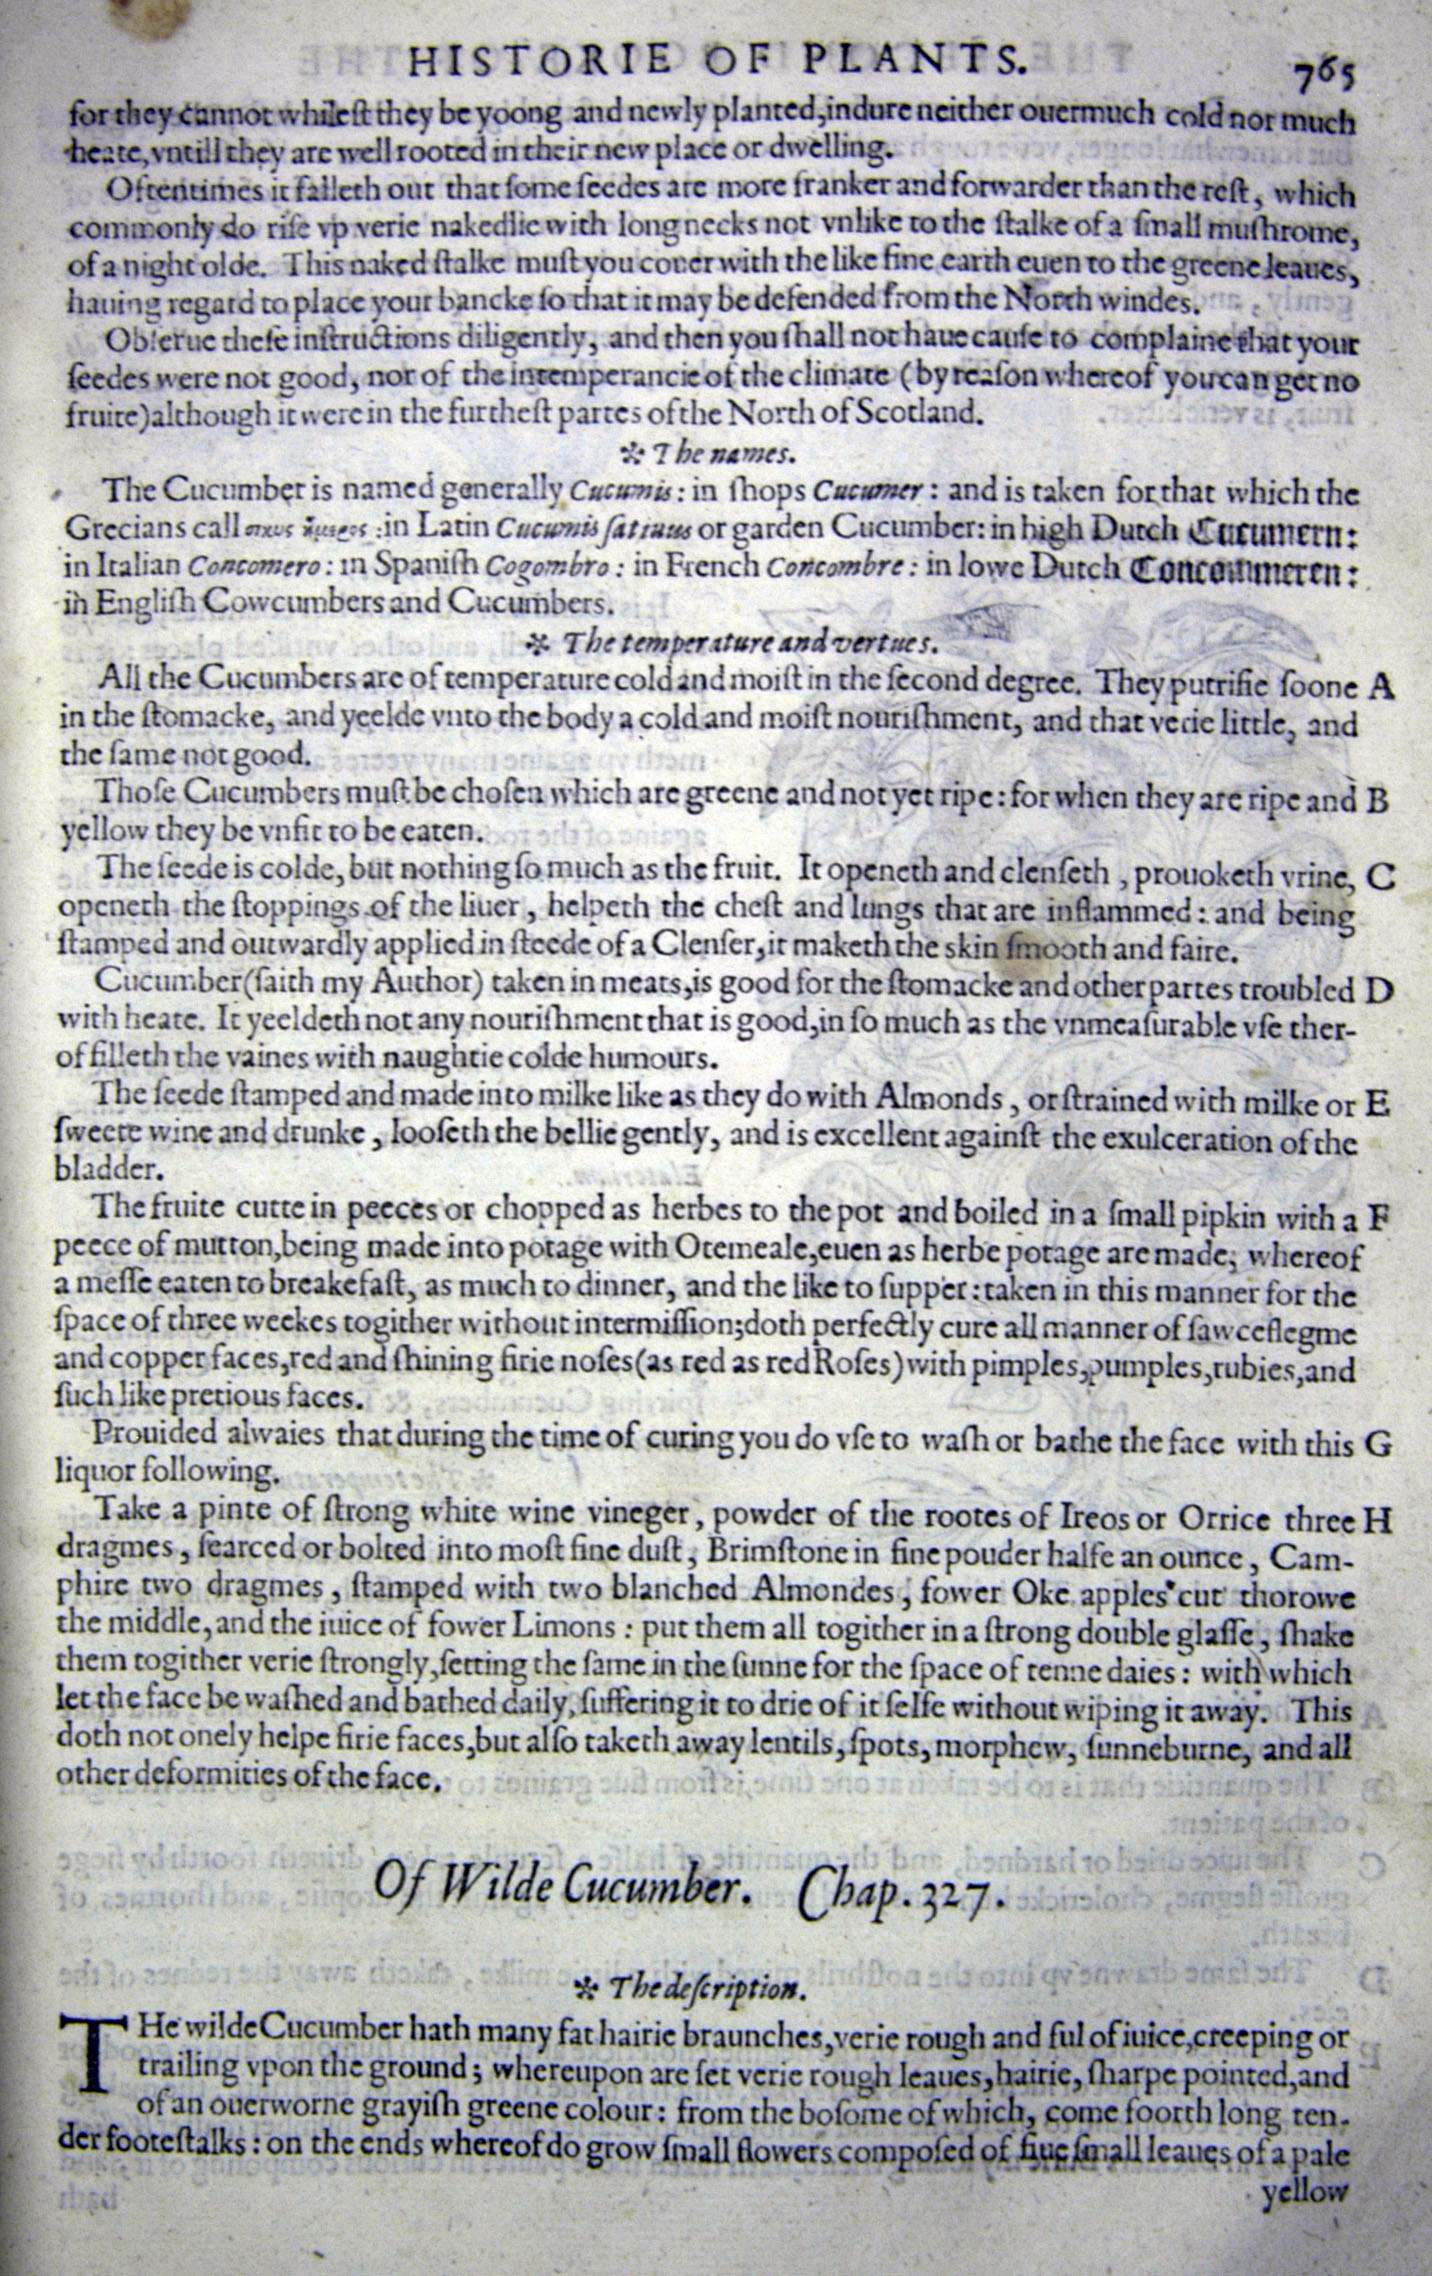 HISTORIE OF PLANTS. 765
for they cannot whileſt they be yoong and newly planted,indure neither ouermuch cold nor much
heate,vntill they are well rooted in their new place or dwelling.
Oftentimes it falleth out that ſome ſeedes are more franker and forwarder than the reſt, which
commonly do riſe vp verie nakedlie with long necks not vnlike to the ſtalke of a ſmall muſhrome,
of a night olde. This naked ſtalke muſt you couer with the like fine earth euen to the greene leaues,
hauing regard to place your bancke ſo that it may be defended from the North windes.
Obſerue theſe inſtructions diligently, and then you ſhall not haue cauſe to complaine that your
ſeedes were not good, nor of the intemperancie of the climate (by reaſon whereof you can get no
fruite)although it were in the furtheſt partes of the North of Scotland.
✲ The names.
The Cucumber is named generally Cucumis: in ſhops Cucumer: and is taken for that which the
Grecians call :in Latin Cucumis ſatiuus or garden Cucumber: in high Dutch Cucumern:
in Italian Concomero: in Spaniſh Cogombro: in French Concombre: in lowe Dutch Concommeren:
in Engliſh Cowcumbers and Cucumbers.
✲ The temperature and vertues.
All the Cucumbers are of temperature cold and moiſt in the ſecond degree. They putrifie ſoone A
in the ſtomacke, and yeelde vnto the body a cold and moiſt nouriſhment, and that verie little, and
the ſame not good.
Thoſe Cucumbers muſt be choſen which are greene and not yet ripe: for when they are ripe and B
yellow they be vnfit to be eaten.
The ſeede is colde, but nothing ſo much as the fruit. It openeth and clenſeth, prouoketh vrine, C
openeth the ſtoppings of the liuer, helpeth the cheſt and lungs that are inflammed: and being
ſtamped and outwardly applied in ſteede of a Clenſer,it maketh the skin ſmooth and faire.
Cucumber(ſaith my Author) taken in meats,is good for the ſtomacke and other partes troubled D
with heate. It yeeldeth not any nouriſhment that is good,in ſo much as the vnmeaſurable vſe ther-
of filleth the vaines with naughtie colde humours.
The ſeede ſtamped and made into milke like as they do with Almonds, or ſtrained with milke or E
ſweete wine and drunke, looſeth the bellie gently, and is excellent againſt the exulceration of the
bladder.
The fruite cutte in peeces or chopped as herbes to the pot and boiled in a ſmall pipkin with a F
peece of mutton,being made into potage with Otemeale,euen as herbe potage are made, whereof
a meſſe eaten to breakefaſt, as much to dinner, and the like to ſupper: taken in this manner for the
ſpace of three weekes togither without intermiſſion;doth perfectly cure all manner of ſawceflegme
and copper faces,red and ſhining firie noſes(as red as red Roſes)with pimples,pumples,rubies,and
ſuch like pretious faces.
Prouided alwaies that during the time of curing you do vſe to waſh or bathe the face with this G
liquor following.
Take a pinte of ſtrong white wine vineger, powder of the rootes of Ireos or Orrice three H
dragmes, ſearced or bolted into moſt fine duſt, Brimſtone in fine pouder halfe an ounce, Cam-
phire two dragmes, ſtamped with two blanched Almondes, fower Oke apples cut thorowe
the middle, and the iuice of fower Limons: put them all togither in a ſtrong double glaſſe, ſhake
them togither verie ſtrongly,ſetting the ſame in the ſunne for the ſpace of tenne daies: with which
let the face be waſhed and bathed daily, ſuffering it to drie of it ſelfe without wiping it away. This
doth not onely helpe firie faces,but alſo taketh away lentils, ſpots, morphew, ſunneburne, and all
other deformities of the face.
Of Wilde Cucumber. Chap. 327.
✲ The deſcription.
THe wilde Cucumber hath many fat hairie braunches,verie rough and ful of iuice,creeping or
trailing vpon the ground; whereupon are ſet verie rough leaues,hairie, ſharpe pointed,and
of an ouerworne grayiſh greene colour: from the boſome of which, come foorth long ten-
der footeſtalks: on the ends whereof do grow ſmall flowers compoſed of fiue ſmall leaues of a pale
yellow